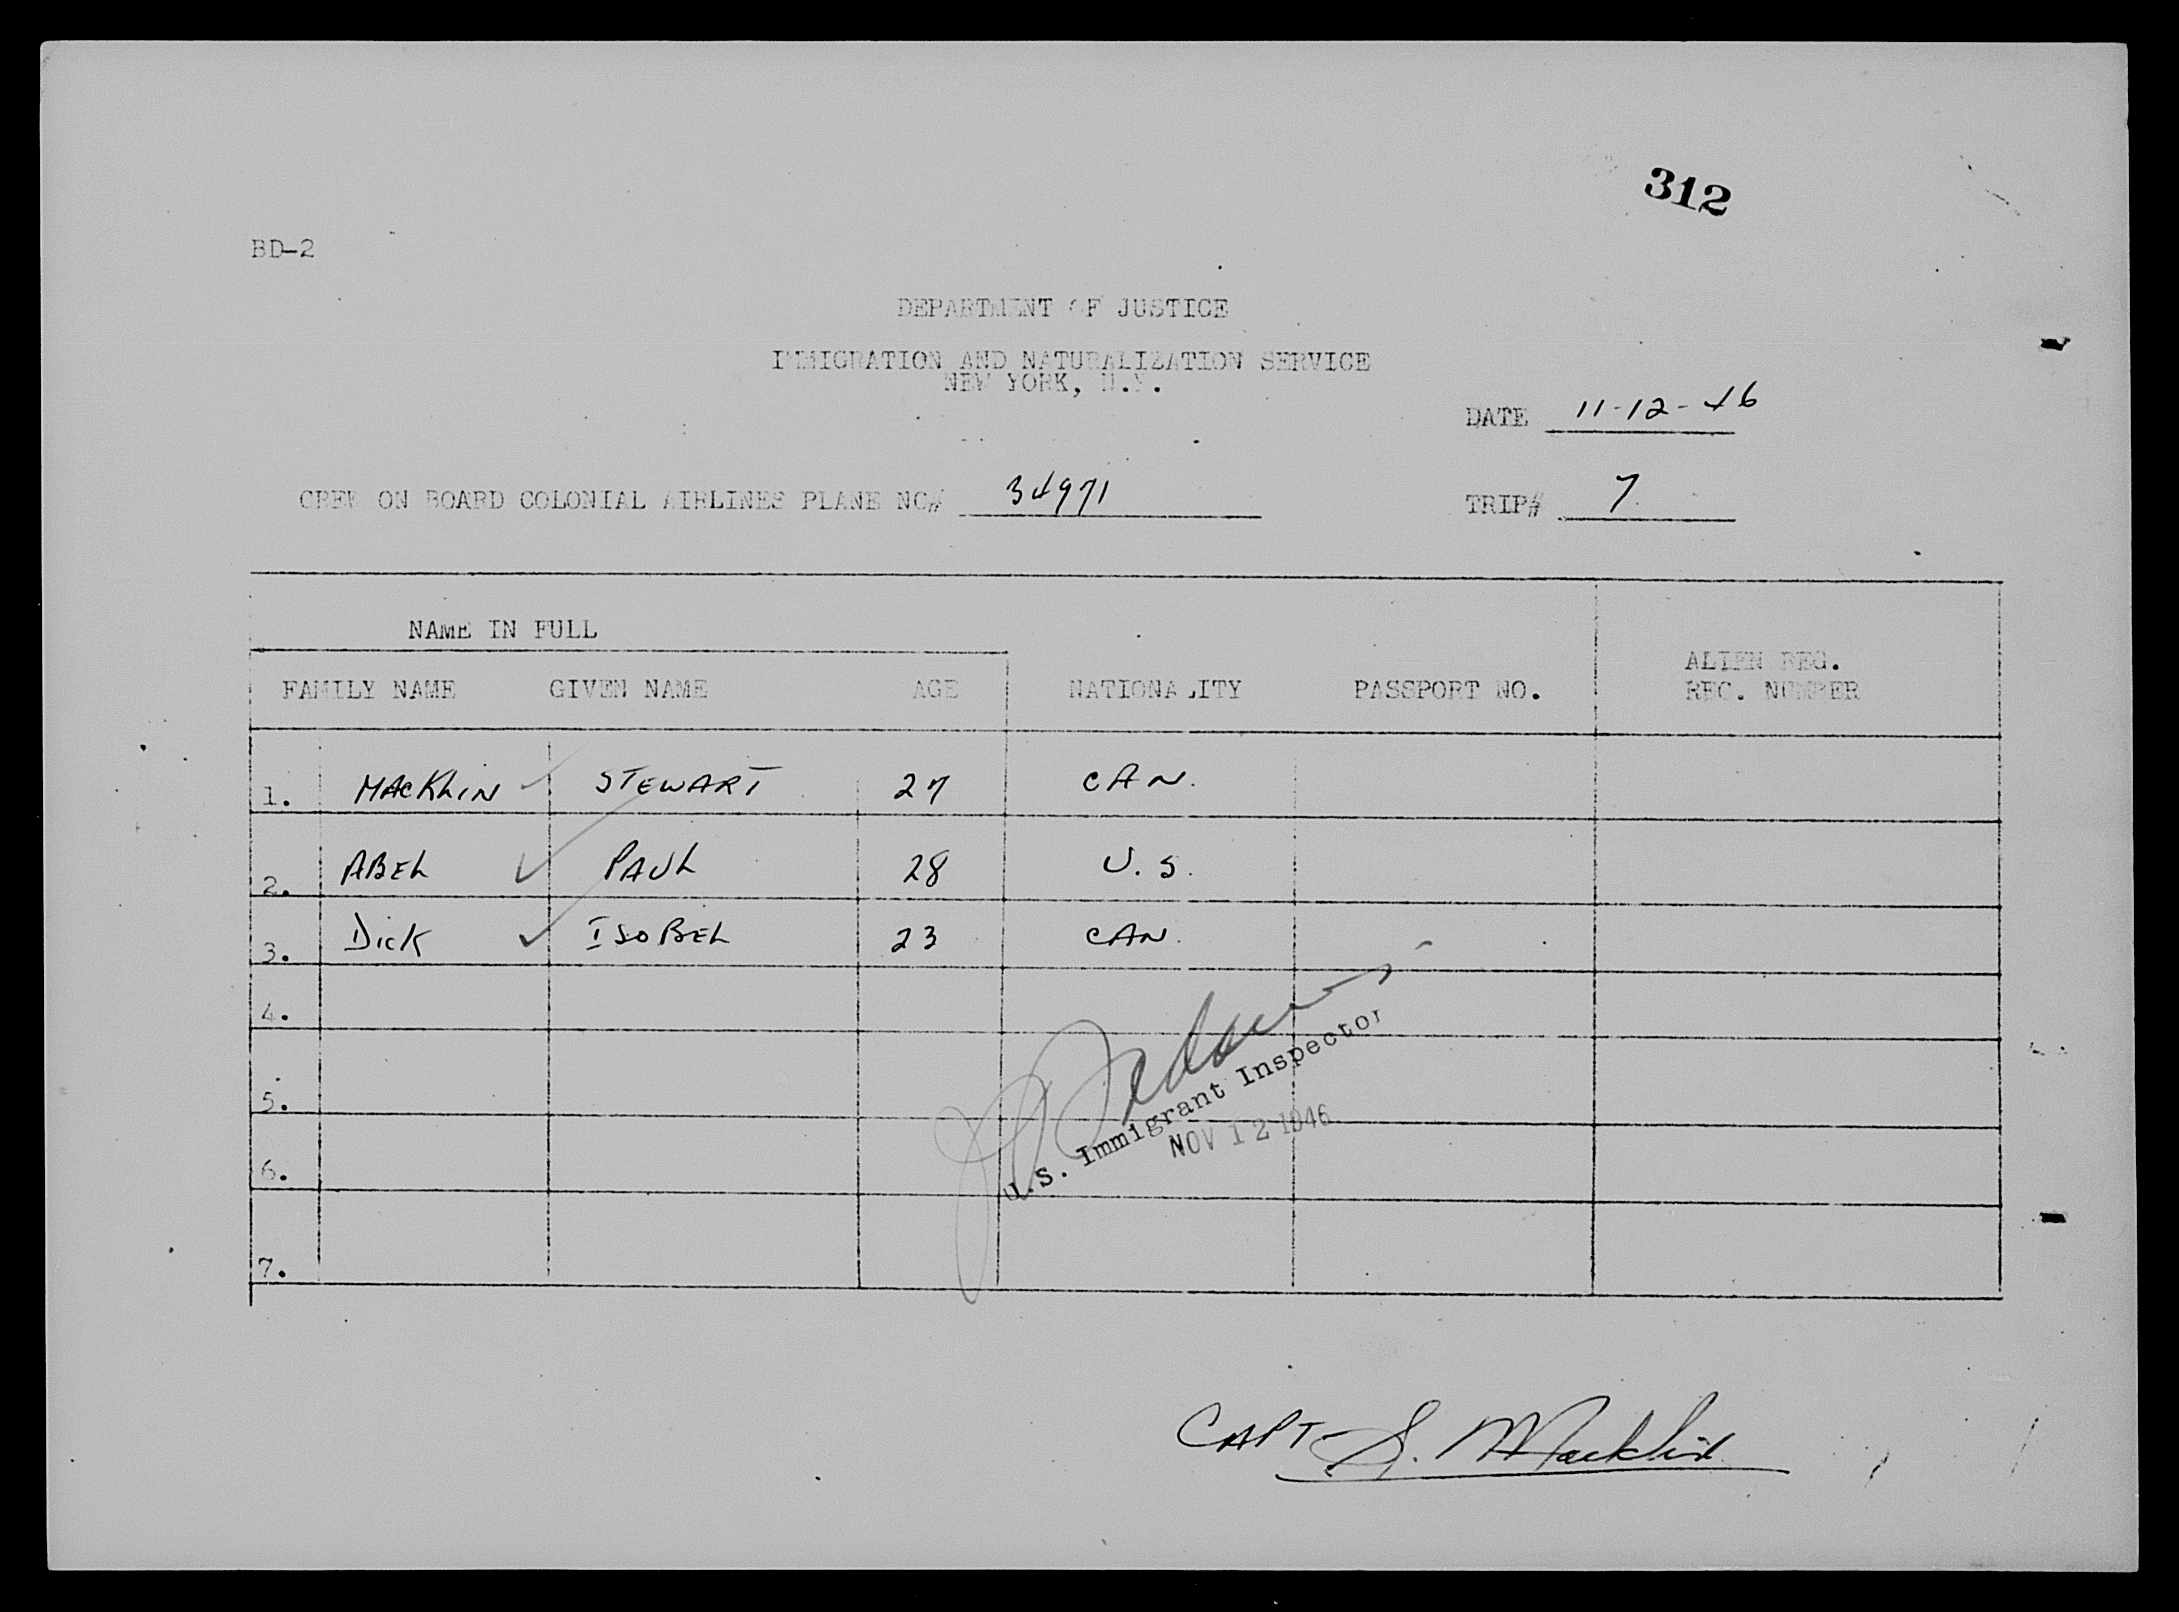 312
BD-2
DEPARTMENT OF JUSTICE
IMMIGRATION AND NATURALIZATION SERVICE
NEW YORK, N.Y.
DATE 11-12-46
CREW ON BOARD COLONIAL AIRLINES PLANE NO# 34971 TRIP# 7
NAME IN FULL
ALIEN REG.
FAMILY NAME GIVEN NAME AGE NATIONALITY PASSPORT NO. REC. NUMBER
1. MACKLIN STEWART 27 CAN.
2. ABEL PAUL 28 U.S.
3. DICK ISOBEL 23 CAN.
4.
5.
6.
7.
U.S. Immigrant Inspector
NOV 12 1946
CAPT- S. Macklin